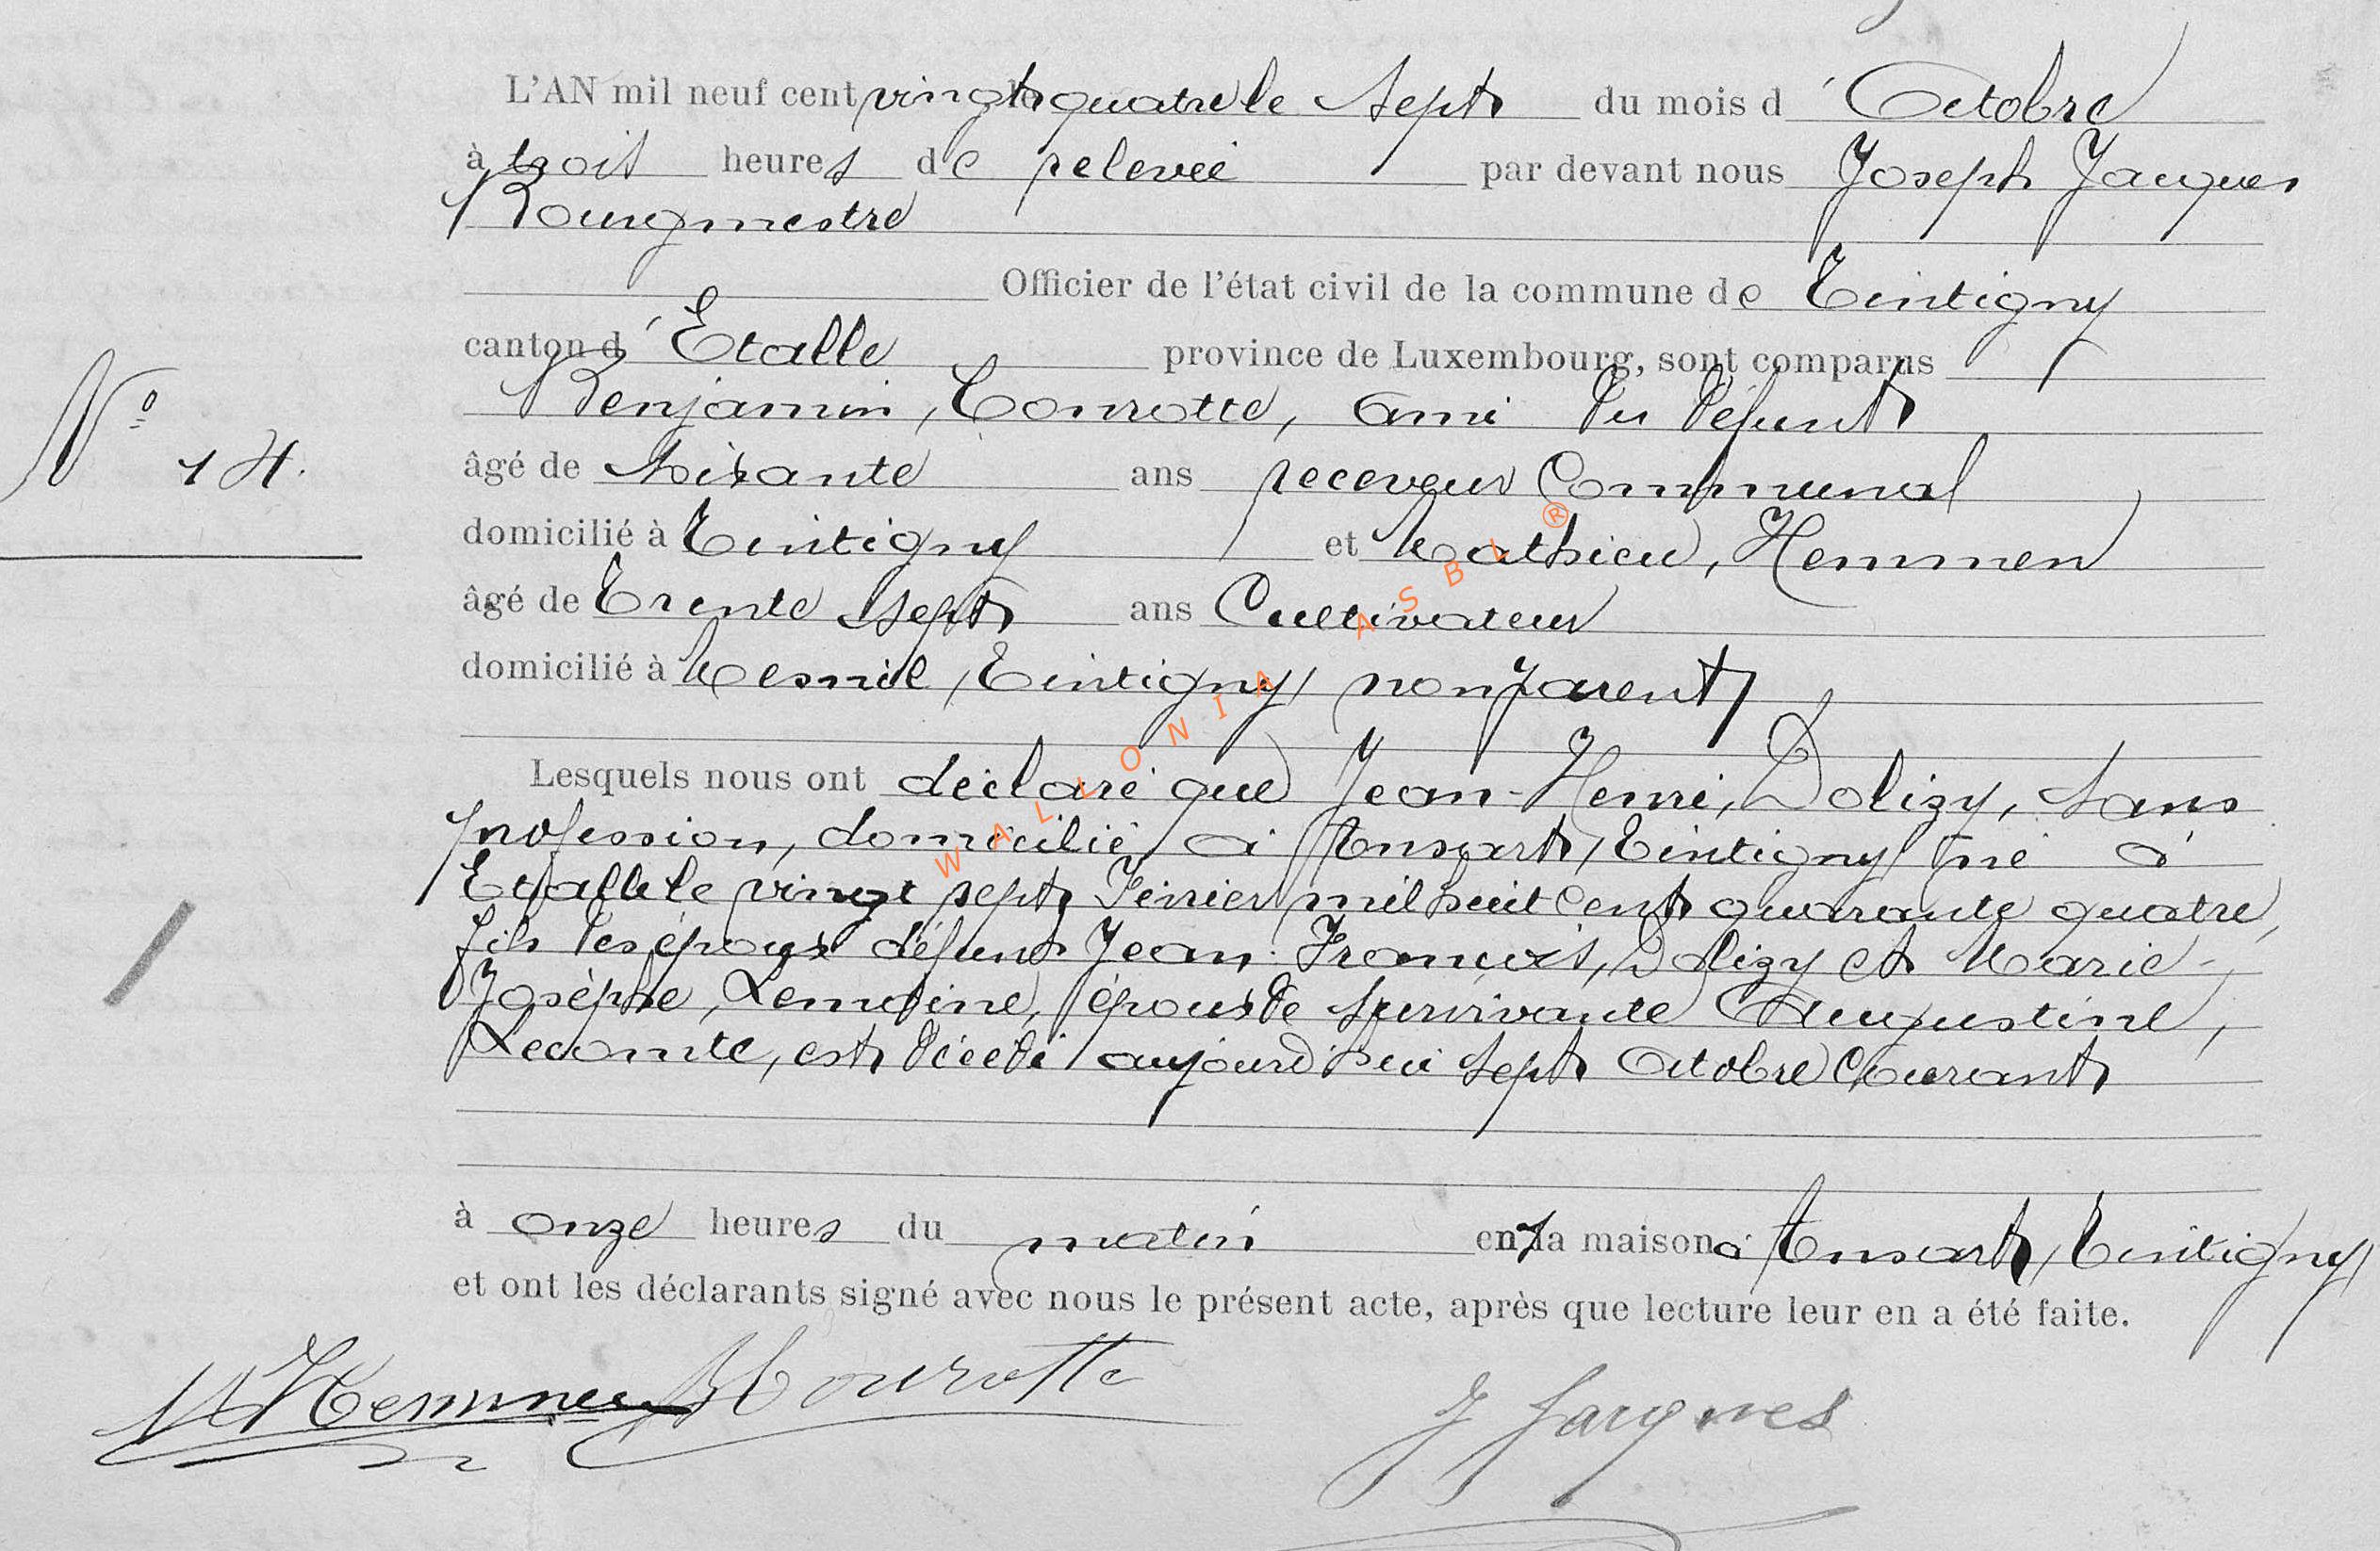 L'AN mil neuf cent vingt quatre le sept du mois d'Octobre
à trois heures de relevée par devant nous Joseph Jacques
Bourgmestre
Officier de l'état civil de la commune de Tintigny
canton d'Etalle province de Luxembourg, sont comparus
Benjamin, Conrotte, ami du défunt
N° 14.
âgé de soixante ans receveur Communal
domicilié à Tintigny et Mathieu, Hemmen
âgé de Trente sept ans Cultivateur
domicilié à Mesnil, Tintigny, non parent
Lesquels nous ont déclaré que Jean-Henri, Dolizy, sans
profession, domicilié à Ansart, Tintigny né à
Etalle le vingt sept Février mil huit cent quarante quatre,
fils des époux défunts Jean-François, Dolizy et Marie-
Josèphe, Lemoine, époux de survivante Augustine,
Lecomte, est décédé aujourd'hui sept Octobre Courant
à onze heures du matin en la maison à Ansart, Tintigny
et ont les déclarants signé avec nous le présent acte, après que lecture leur en a été faite.
M Hemmen B Conrotte J Jacques
WALLONIA ASBL ®